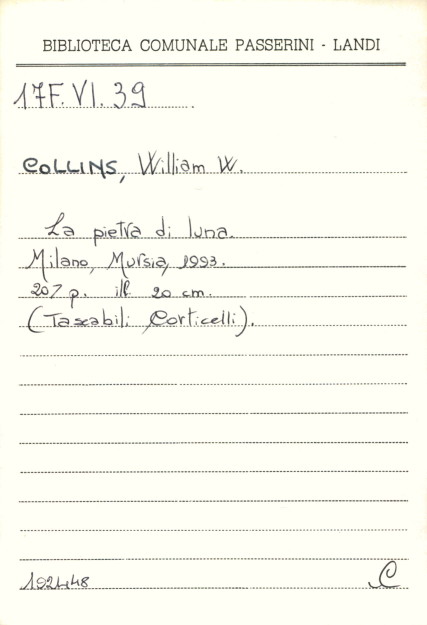 BIBLIOTECA COMUNALE PASSERINI - LANDI
17F.VI.39
COLLINS, William W.
La pietra di luna.
Milano, Mursia, 1993.
207 p. ill. 20 cm.
(Tascabili Corticelli).
102448 C